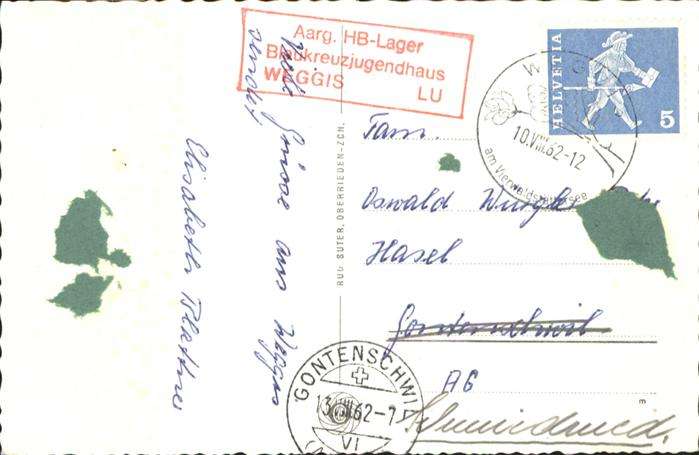 Aarg. HB-Lager
Blaukreuzjugendhaus
WEGGIS LU
HELVETIA
5
10.VIII.62-12
am Vierwaldstättersee
Viele Grüsse aus Weggis
sendet
Elisabeth
RUD. SUTER, OBERRIEDEN-ZCH.
Fam.
Oswald
Hasel
Gontenschwil
AG
GONTENSCHWIL
13.VIII.62-7
VI
m